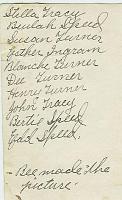 Stella Tracy
Beulah Speed
Susan Turner
Esther Ingram
Blanche Turner
Dee Turner
Henry Turner
John Tracy
Bertie Speed
Speed
- Bee made the
picture -